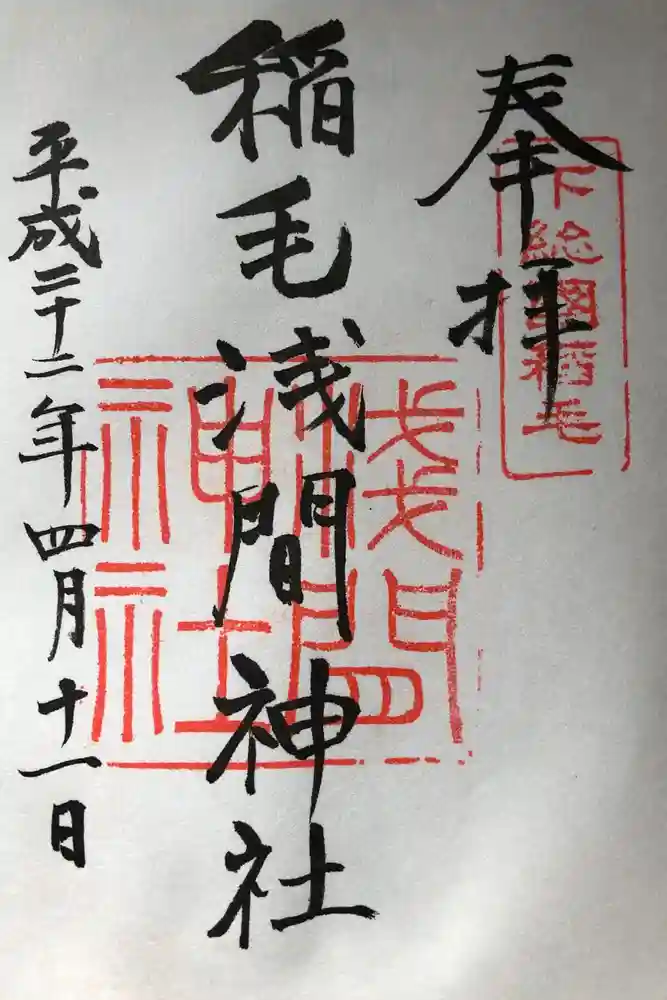 奉拝
下総國稲毛
稲毛浅間神社
浅間
神社
平成二十二年四月十一日